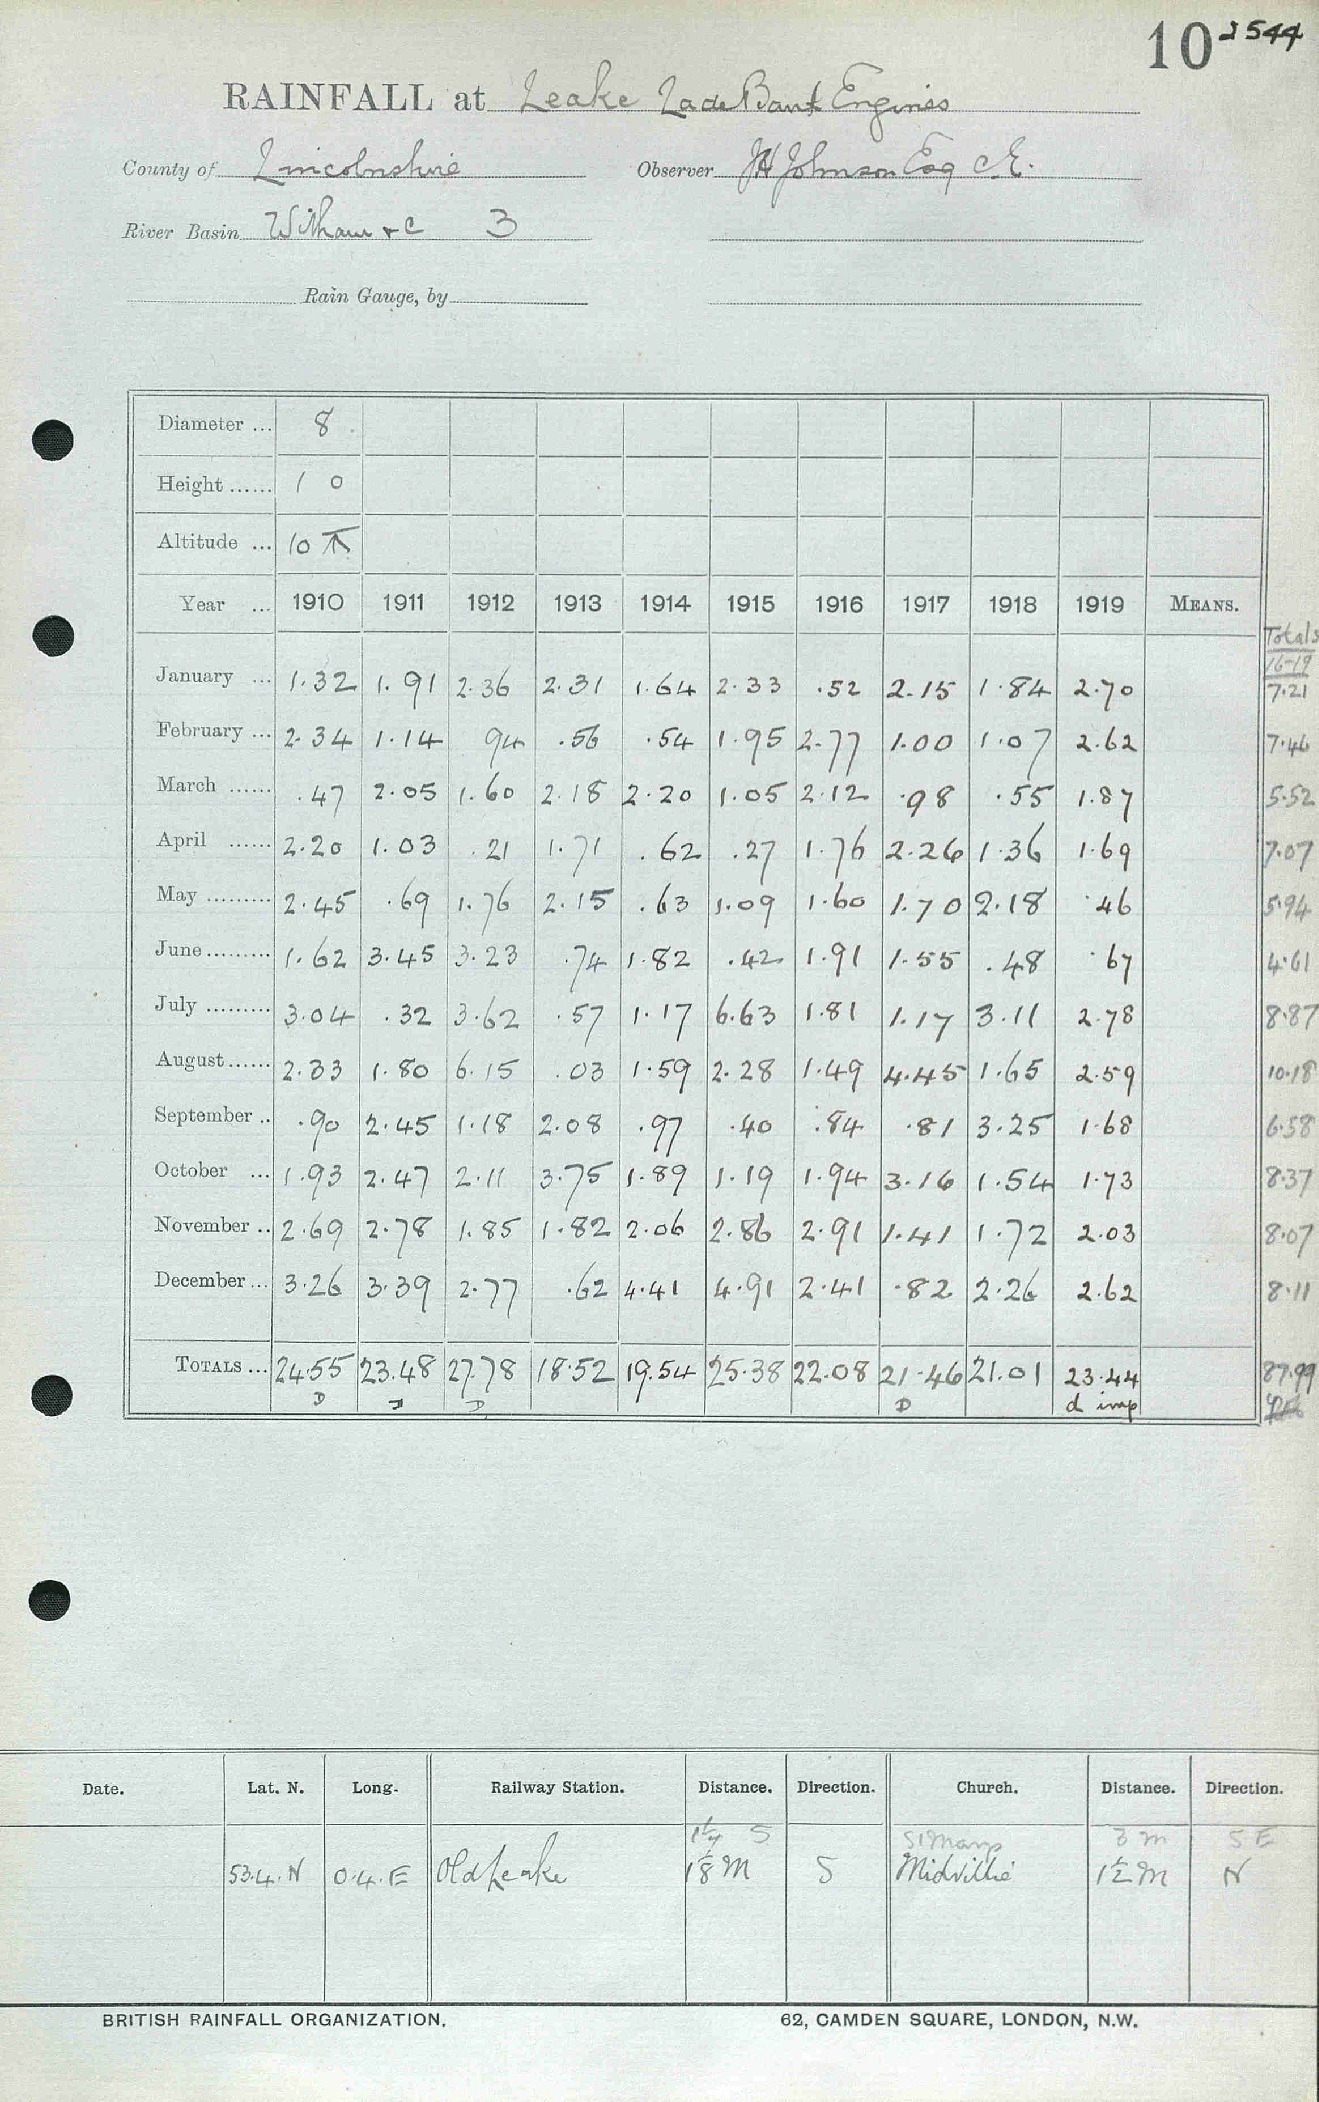 10 2544
RAINFALL at Leake Lade Bank Engines
County of Lincolnshire Observer JH Johnson Esq C.E.
River Basin Witham & C 3
Rain Gauge, by
Diameter ... 8
Height ...... 1 0
Altitude ... 10
Year ... 1910 1911 1912 1913 1914 1915 1916 1917 1918 1919 MEANS. Totals
16-19
January ... 1.32 1.91 2.36 2.31 1.64 2.33 .52 2.15 1.84 2.70 7.21
February ... 2.34 1.14 94 .56 .54 1.95 2.77 1.00 1.07 2.62 7.46
March ...... .47 2.05 1.60 2.18 2.20 1.05 2.12 .98 .55 1.87 5.52
April ...... 2.20 1.03 .21 1.71 .62 .27 1.76 2.26 1.36 1.69 7.07
May ......... 2.45 .69 1.76 2.15 .63 1.09 1.60 1.70 2.18 .46 5.94
June ......... 1.62 3.45 3.23 .74 1.82 .42 1.91 1.55 .48 .67 4.61
July ......... 3.04 .32 3.62 .57 1.17 6.63 1.81 1.17 3.11 2.78 8.87
August ...... 2.33 1.80 6.15 .03 1.59 2.28 1.49 4.45 1.65 2.59 10.18
September .. .90 2.45 1.18 2.08 .97 .40 .84 .81 3.25 1.68 6.58
October ... 1.93 2.47 2.11 3.75 1.89 1.19 1.94 3.16 1.54 1.73 8.37
November .. 2.69 2.78 1.85 1.82 2.06 2.86 2.91 1.41 1.72 2.03 8.07
December ... 3.26 3.39 2.77 .62 4.41 4.91 2.41 .82 2.26 2.62 8.11
TOTALS ... 24.55 23.48 27.78 18.52 19.54 25.38 22.08 21.46 21.01 23.44 87.99
D D D d imp
Date. Lat. N. Long. Railway Station. Distance. Direction. Church. Distance. Direction.
S St Marys 3 m S E
53.4.N 0.4.E Old Leake 1 1/8 M S Midville 1 1/2 M N
BRITISH RAINFALL ORGANIZATION. 62, CAMDEN SQUARE, LONDON, N.W.